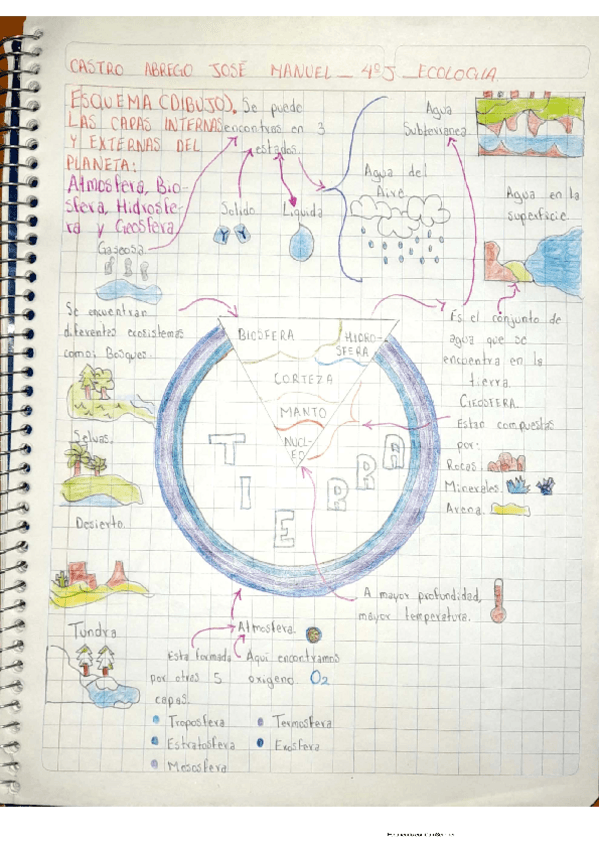 CASTRO ABREGO JOSÉ MANUEL _ 4°J _ ECOLOGIA
ESQUEMA (DIBUJO).
LAS CAPAS INTERNAS
Y EXTERNAS DEL
PLANETA:
Atmosfera, Bio-
sfera, Hidrosfe-
ra y Geosfera
Se puede
encontras en 3
estados.
Solido
Liquida
Gaseosa
Agua
Subterranea
Agua del
Aire
Agua en la
superfacie.
Se encuentran
diferentes ecosistemas
como: Bosques.
Selvas.
Desierto.
Tundra
BIOSFERA
HIDRO-
SFERA
CORTEZA
MANTO
NUCL-
EO
TIERRA
Es el conjunto de
agua que se
encuentra en la
tierra.
GEOSFERA.
Estan compuestas
por:
Rocas:
Minerales.
Arena.
A mayor profundidad,
mayor temperatura.
Atmosfera.
Esta formada
por otras 5
capas.
Aqui encontramos
oxigeno O2
Troposfera
Estratosfera
Mesosfera
Termosfera
Exosfera